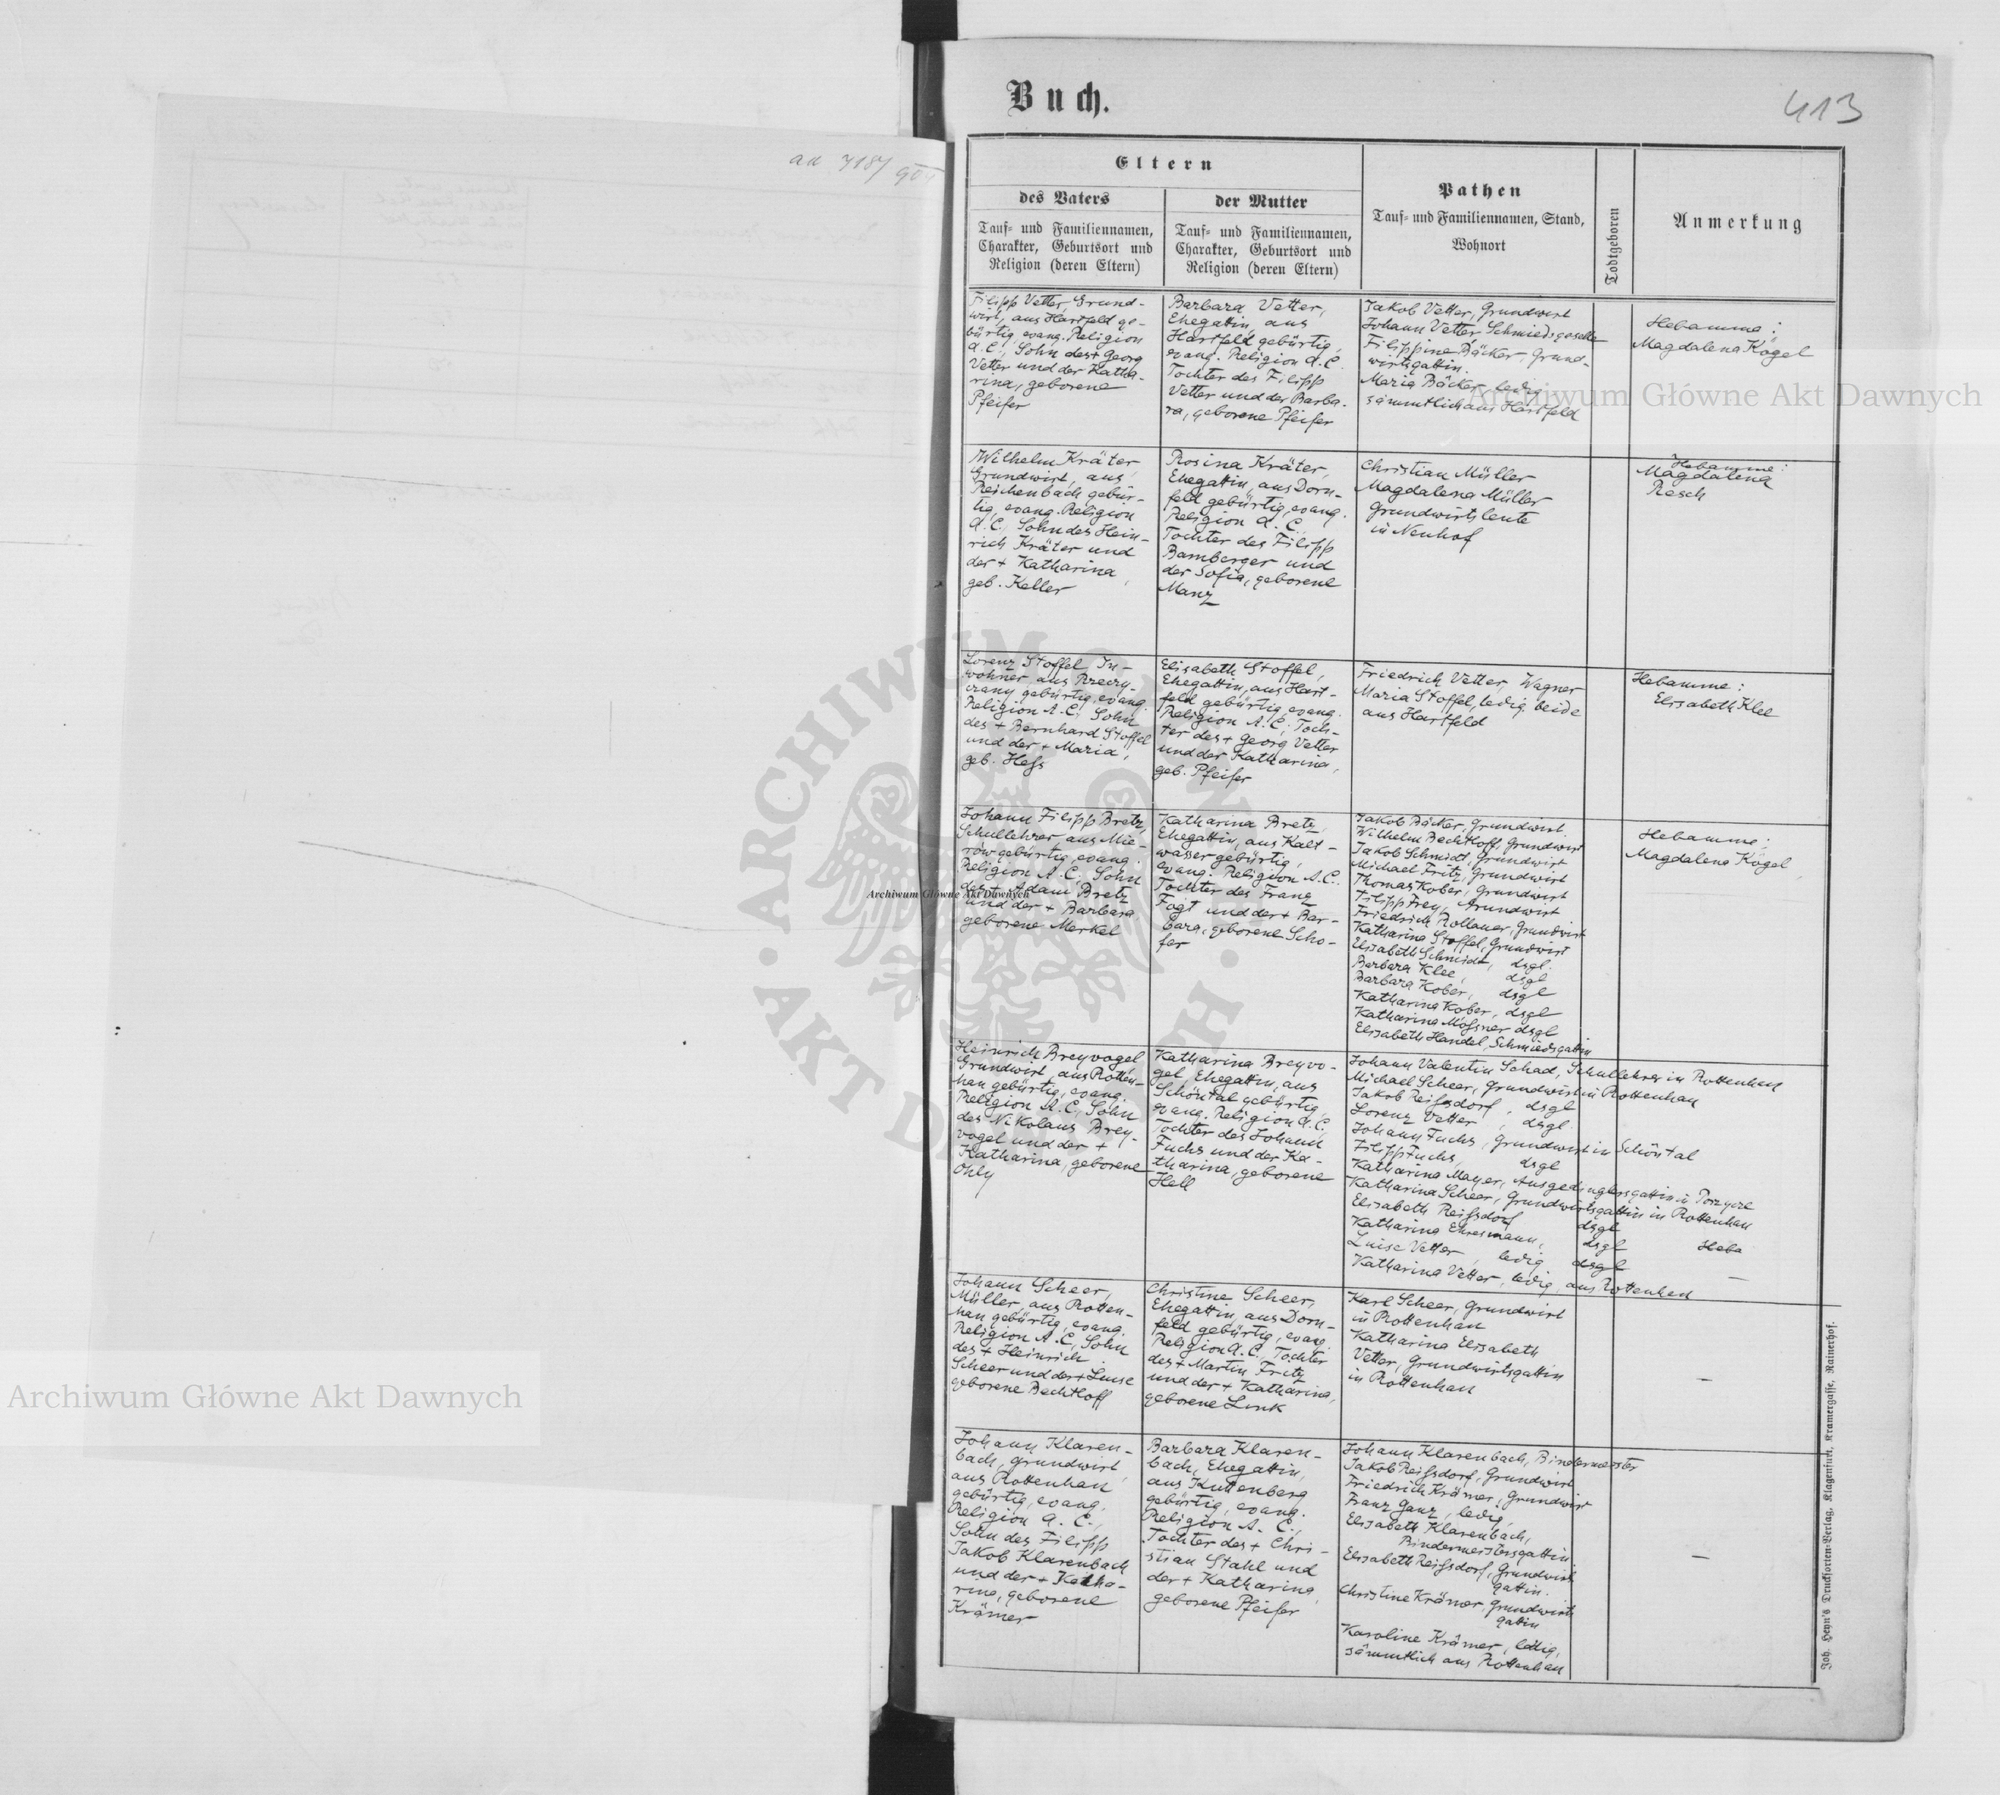 Buch.
413
ad 7187
Eltern
des Vaters
der Mutter
Pathen
Todtgeboren
Anmerkung
Tauf= und Familiennamen,
Charakter, Geburtsort und
Religion (deren Eltern)
Tauf= und Familiennamen,
Charakter, Geburtsort und
Religion (deren Eltern)
Tauf= und Familiennamen, Stand,
Wohnort
Filipp Vetter, Grund-
wirt, aus Hartfeld ge-
bürtig, evang. Religion
A.C., Sohn des + Georg
Vetter und der Katha-
rina, geborene
Pfeifer
Barbara Vetter,
Ehegattin, aus
Hartfeld gebürtig,
evang. Religion A.C.
Tochter des Filipp
Vetter und der Barba-
ra, geborene Pfeifer
Jakob Vetter, Grundwirt
Johann Vetter, Schmiedsgeselle
Filippine Bäcker, Grund-
wirtsgattin.
Maria Bäcker, ledig
sämmtlich aus Hartfeld
Hebamme:
Magdalena Kögel
Wilhelm Kräter,
Grundwirt, aus
Reichenbach gebür-
tig, evang. Religion
A.C., Sohn des Hein-
rich Kräter und
der + Katharina,
geb. Keller
Rosina Kräter,
Ehegattin, aus Dorn-
feld gebürtig, evang.
Religion A.C.,
Tochter des Filipp
Bamberger und
der Sofia, geborene
Manz
Christian Müller
Magdalena Müller
Grundwirtsleute
in Neuhof
Hebamme:
Magdalena
Resch
Lorenz Stoffel, In-
wohner, aus Rzeczy-
czany gebürtig, evang.
Religion A.C., Sohn
des + Bernhard Stoffel
und der + Maria,
geb. Heß
Elisabeth Stoffel,
Ehegattin, aus Hart-
feld gebürtig, evang.
Religion A.C., Toch-
ter des + Georg Vetter
und der Katharina,
geb. Pfeifer
Friedrich Vetter, Wagner
Maria Stoffel, ledig, beide
aus Hartfeld
Hebamme:
Elisabeth Klee
Johann Filipp Bretz,
Schullehrer, aus Mie-
rów gebürtig, evang.
Religion A.C., Sohn
des + Adam Bretz
und der + Barbara
geborene Merkel
Katharina Bretz,
Ehegattin, aus Kalt-
wasser gebürtig,
evang. Religion A.C.,
Tochter des Franz
Fogt und der + Bar-
bara, geborene Scho-
fer
Jakob Bäcker, Grundwirt.
Wilhelm Bechtloff, Grundwirt
Jakob Schmidt, Grundwirt
Michael Fritz, Grundwirt
Thomas Kober, Grundwirt
Filipp Frey, Grundwirt
Friedrich Rollauer, Grundwirt
Katharina Stoffel, Grundwirt
Elisabeth Schmidt, dsgl.
Barbara Klee, dsgl
Barbara Kober, dsgl
Katharina Kober, dsgl
Katharina Moßner dsgl
Elisabeth Handel, Schmiedsgattin
Hebamme:
Magdalena Kögel
Heinrich Breyvogel
Grundwirt, aus Rotten-
han gebürtig, evang.
Religion A.C., Sohn
des Nikolaus Brey-
vogel und der +
Katharina, geborene
Ohly
Katharina Breyvo-
gel, Ehegattin, aus
Schöntal gebürtig,
evang. Religion A.C.
Tochter des Johann
Fuchs und der Ka-
tharina, geborene
Hell
Johann Valentin Schad, Schullehrer in Rottenhan
Michael Scheer, Grundwirt in Rottenhan
Jakob Reißdorf, dsgl
Lorenz Vetter, dsgl.
Johann Fuchs, Grundwirt in Schöntal
Filipp Fuchs, dsgl
Katharina Mayer, Ausgedingersgattin in Porzycze
Katharina Scheer, Grundwirtsgattin in Rottenhan
Elisabeth Reißdorf dsgl
Katharina Ehresmann, dsgl
Luise Vetter, ledig dsgl
Katharina Vetter, ledig, aus Rottenhan
Heba
—
Johann Scheer,
Müller, aus Rotten-
han gebürtig, evang.
Religion A.C., Sohn
des + Heinrich
Scheer und der + Luise
geborene Bechtloff
Christine Scheer,
Ehegattin, aus Dorn-
feld gebürtig, evang.
Religion A.C., Tochter
des + Martin Fritz
und der + Katharina,
geborene Link
Karl Scheer, Grundwirt
in Rottenhan
Katharina Elisabeth
Vetter, Grundwirtsgattin
in Rottenhan
—
Johann Klaren-
bach, Grundwirt,
aus Rottenhan
gebürtig, evang.
Religion A.C.,
Sohn des Filipp
Jakob Klarenbach
und der + Katha-
rina, geborene
Krämer
Barbara Klaren-
bach, Ehegattin,
aus Kuttenberg
gebürtig, evang.
Religion A.C.,
Tochter des + Chri-
stian Stahl und
der + Katharina,
geborene Pfeifer
Johann Klarenbach, Bindermeister
Jakob Reißdorf, Grundwirt
Friedrich Krämer, Grundwirt
Franz Ganz, ledig,
Elisabeth Klarenbach,
Bindermeistersgattin
Elisabeth Reißdorf, Grundwirts
gattin.
Christine Krämer, Grundwirts
gattin
Karoline Krämer, ledig,
sämmtlich aus Rottenhan
—
Joh. Heyn's Drucksorten-Verlag, Klagenfurt, Kramergasse, Rainerhof.
Archiwum Główne Akt Dawnych
Archiwum Główne Akt Dawnych
Archiwum Główne Akt Dawnych
ARCHIWUM GŁÓWNE AKT DAWNYCH